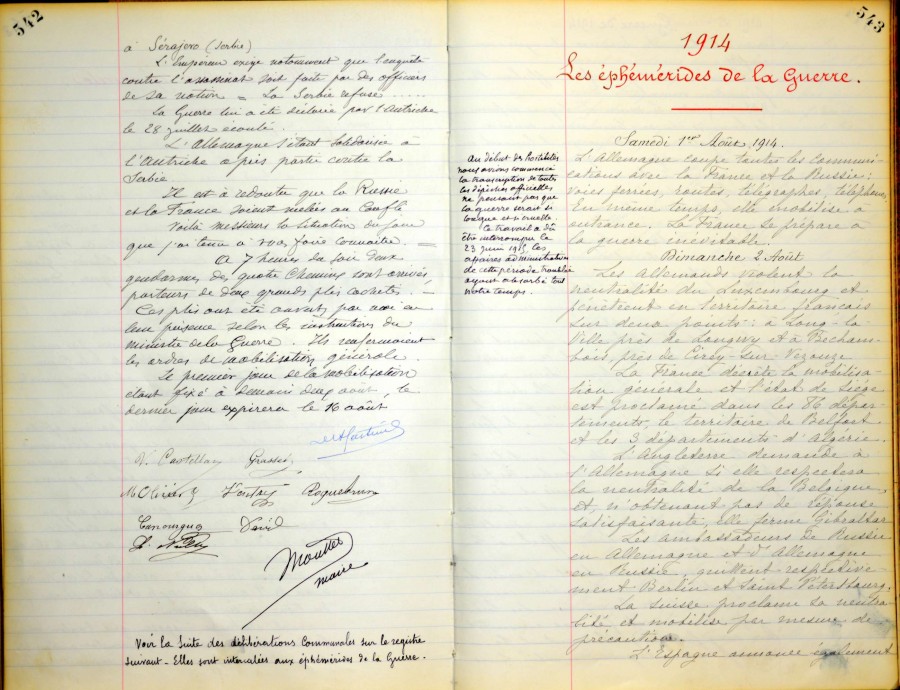 542
à Sérajevo (Serbie)
L'Empereur exige notamment que l'enquête
contre l'assassinat soit faite par des officiers
de sa nation = La Serbie refuse .....
La Guerre lui a été déclarée par l'Autriche
le 28 juillet écoulé.
L'Allemagne s'étant solidarisée à
l'Autriche a pris partie contre la
Serbie.
Il est à redouter que la Russie
et la France soient mêlées au conflit
Voilà messieurs la situation du jour
que j'ai tenu à vous faire connaitre. =
A 7 heures du soir deux
gendarmes des quatre Chemins sont arrivés
porteurs de deux grands plis cachetés. =
Ces plis ont été ouverts par moi en
leur présence selon les instructions du
ministre de la Guerre. Ils renfermaient
les ordres de mobilisation générale.
Le premier jour de la mobilisation
étant fixé à demain deux août, le
dernier jour expirera le 16 août
Castellan Grassi
Ollivier Roquebrun
David
Mouttet
maire
Voir la suite des délibérations Communales sur le registre
suivant - Elles sont intercalées aux éphémérides de la Guerre.
543
1914
Les éphémérides de la Guerre.
Au début des hostilités
nous avions commencé
la transcription de toutes
les dépêches officielles
ne pensant pas que
la guerre serait si
longue et si cruelle.
Ce travail a dû
être interrompu le
23 juin 1915, les
affaires administratives
de cette période troublée
ayant absorbé tout
notre temps.
Samedi 1er Août 1914.
L'Allemagne coupe toutes les communi-
cations avec la France et la Russie:
voies ferrées, routes, télégraphes, téléphones.
En même temps, elle mobilise à
outrance. La France se prépare à
la guerre inévitable.
Dimanche 2 Août
Les Allemands violent la
neutralité du Luxembourg et
pénètrent en territoire français
sur deux points: à Long-la
Ville près de Longwy et à Bertram-
bois, près de Cirey-sur-Vezouze
La France décrète la mobilisa-
tion générale et l'état de siège
est proclamé dans les 86 dépar-
tements, le territoire de Belfort
et les 3 départements d'Algérie.
L'Angleterre demande à
l'Allemagne si elle respectera
la neutralité de la Belgique,
et n'obtenant pas de réponse
satisfaisante, elle ferme Gibraltar
Les ambassadeurs de Russie
en Allemagne et d'Allemagne
en Russie, quittent respective-
ment Berlin et Saint Pétersbourg.
La Suisse proclame sa neutra-
lité et mobilise par mesure de
précaution.
L'Espagne annonce également